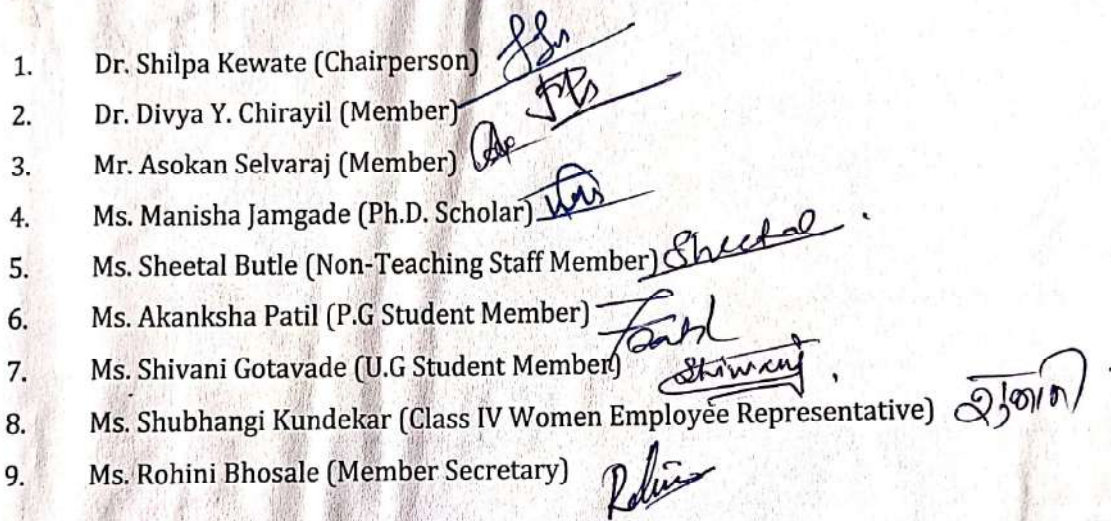 1. Dr. Shilpa Kewate (Chairperson)
2. Dr. Divya Y. Chirayil (Member)
3. Mr. Asokan Selvaraj (Member)
4. Ms. Manisha Jamgade (Ph.D. Scholar)
5. Ms. Sheetal Butle (Non-Teaching Staff Member) Sheetal
6. Ms. Akanksha Patil (P.G Student Member)
7. Ms. Shivani Gotavade (U.G Student Member) Shivani
8. Ms. Shubhangi Kundekar (Class IV Women Employee Representative)
9. Ms. Rohini Bhosale (Member Secretary) Rohini